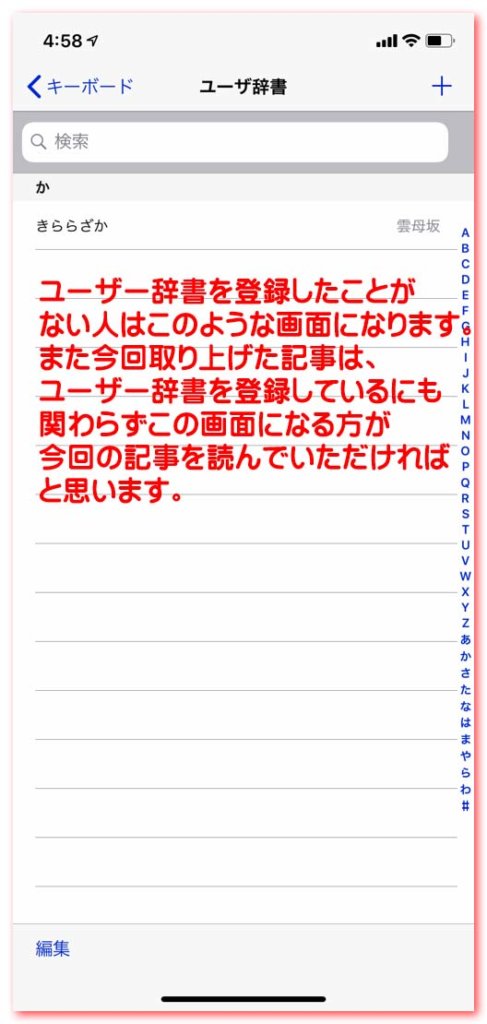 4:58
キーボード
ユーザ辞書
検索
か
きららざか
雲母坂
ユーザー辞書を登録したことが
ない人はこのような画面になります。
また今回取り上げた記事は、
ユーザー辞書を登録しているにも
関わらずこの画面になる方が
今回の記事を読んでいただければ
と思います。
A
B
C
D
E
F
G
H
I
J
K
L
M
N
O
P
Q
R
S
T
U
V
W
X
Y
Z
あ
か
さ
た
な
は
ま
や
ら
わ
#
編集